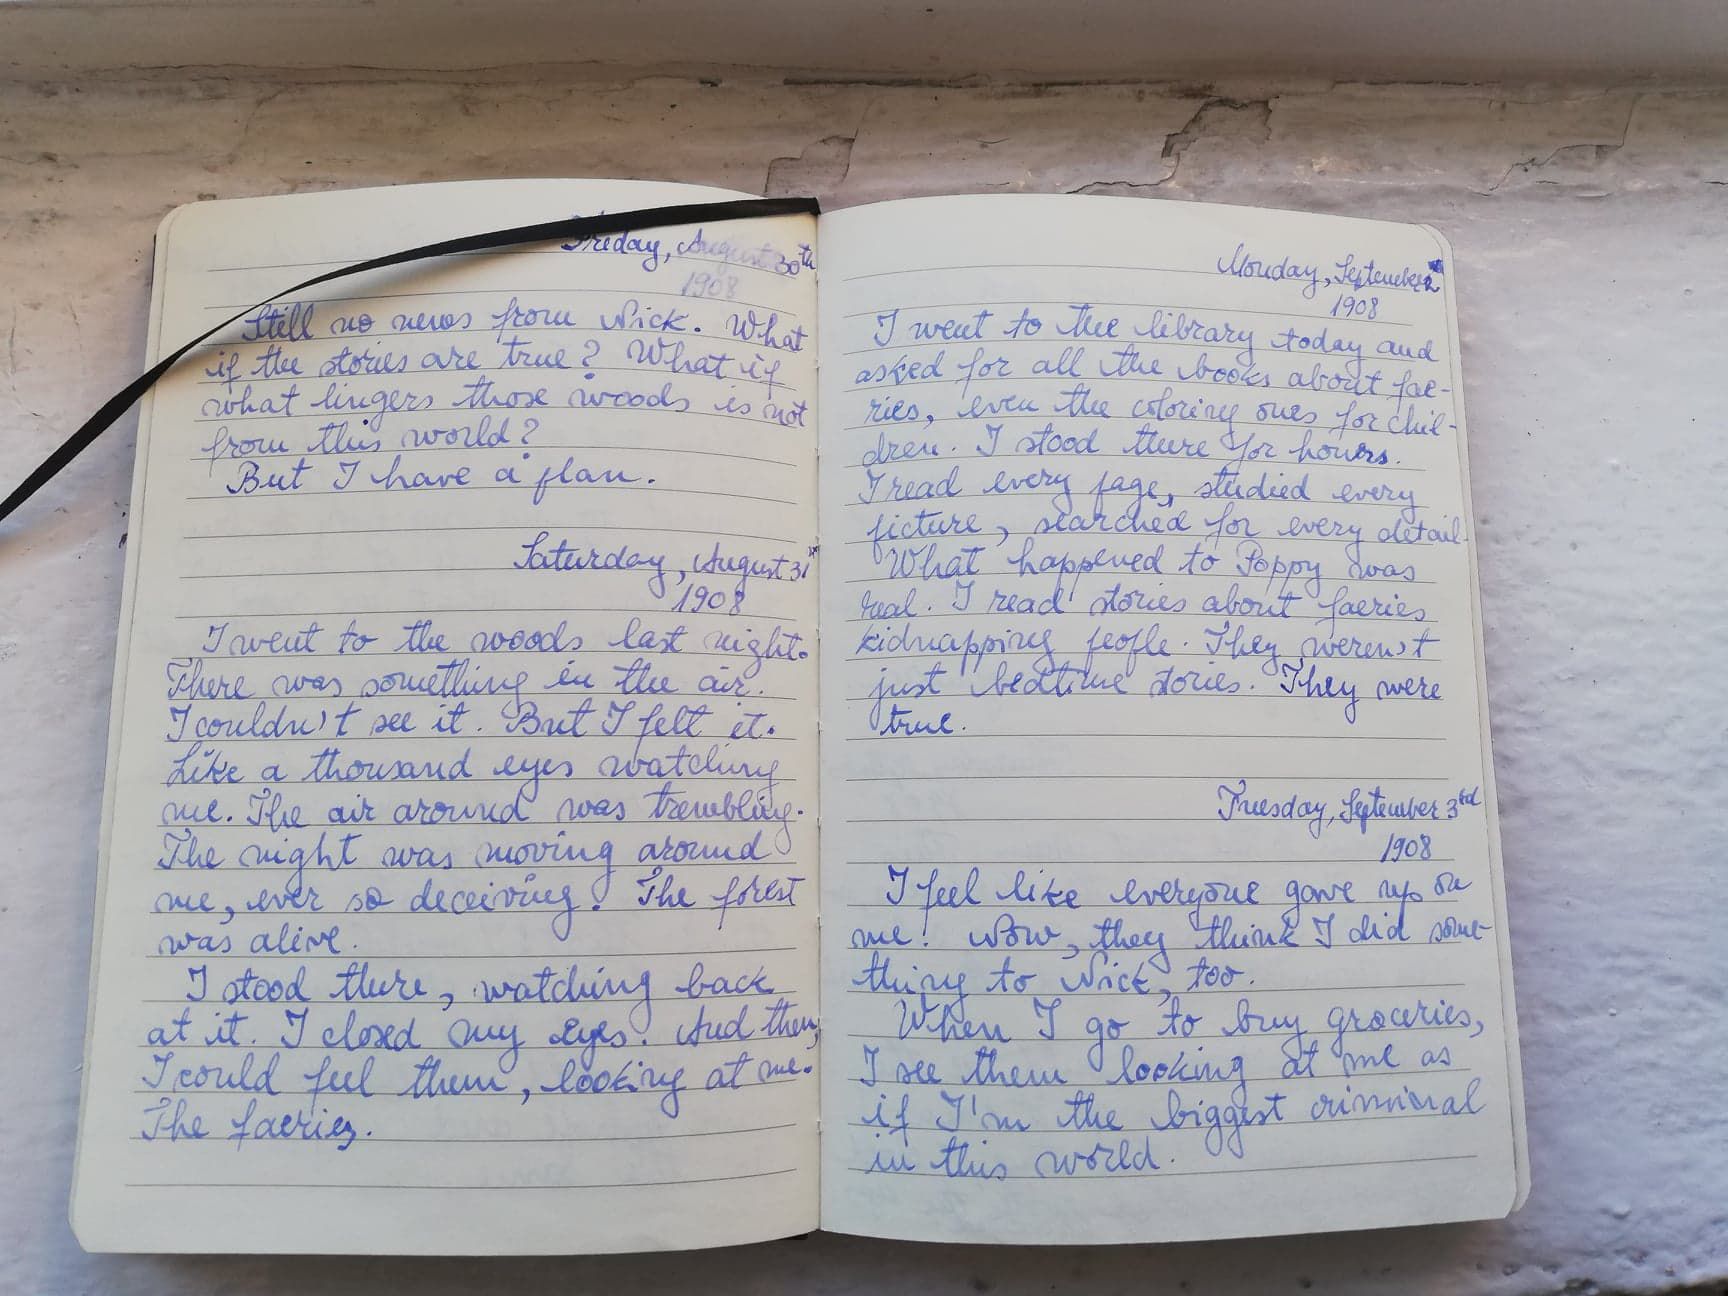 Friday, August 30th
1908
Still no news from Nick. What
if the stories are true? What if
what lingers those woods is not
from this world?
But I have a plan.
Saturday, August 31st
1908
I went to the woods last night.
There was something in the air.
I couldn't see it. But I felt it.
Like a thousand eyes watching
me. The air around was trembling.
The night was moving around
me, ever so deceiving. The forest
was alive.
I stood there, watching back
at it. I closed my eyes. And then,
I could feel them, looking at me.
The faeries.
Monday, September 2
1908
I went to the library today and
asked for all the books about fae-
ries, even the coloring ones for chil-
dren. I stood there for hours.
I read every page, studied every
picture, searched for every detail.
What happened to Poppy was
real. I read stories about faeries
kidnapping people. They weren't
just bedtime stories. They were
true.
Tuesday, September 3rd
1908
I feel like everyone gave up on
me. Now, they think I did some-
thing to Nick, too.
When I go to buy groceries,
I see them looking at me as
if I'm the biggest criminal
in this world.